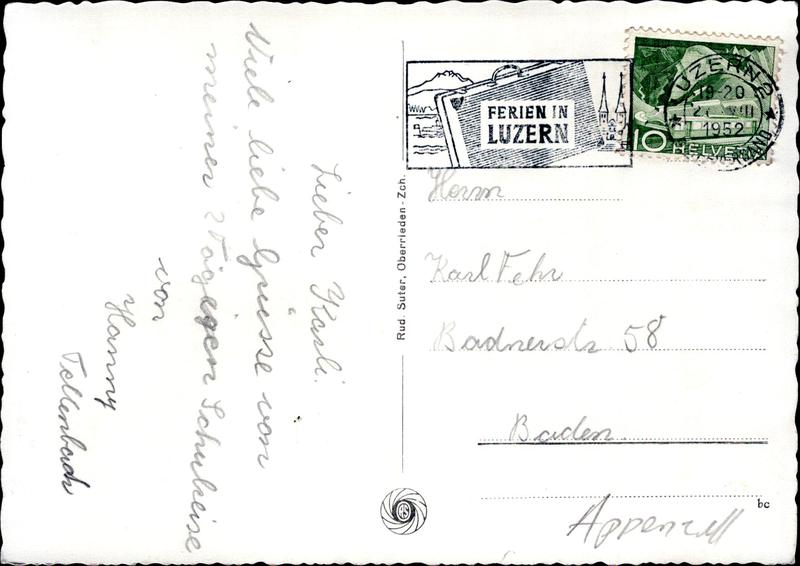 Lieber Karli.
Viele liebe Grüsse von
meiner 2 Tägigen Schulreise
von
Hanny
Tellenbach
Rud. Suter, Oberrieden-Zch.
FERIEN IN
LUZERN
LUZERN 2
19-20
1952
10 HELVETIA
Herrn
Karl Fehr
Badnerstr 58
Baden.
Appenzell
bc